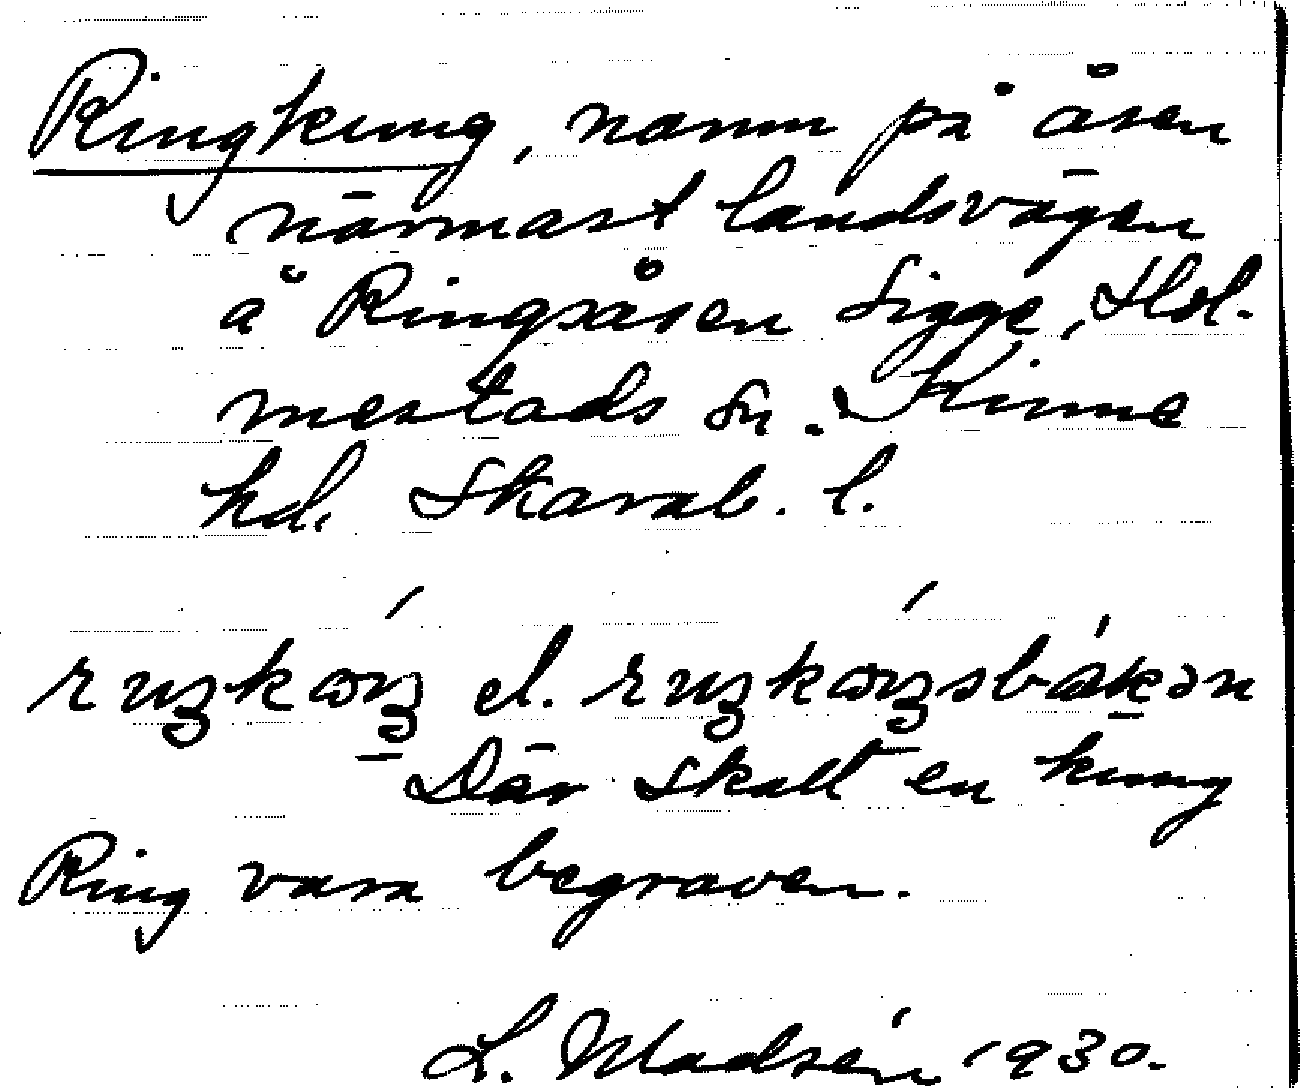 Ringkung, namn på åsen
närmast landsvägen
å Ringsåsen Sigge, Hol-
mestads sn. Kinne
hd. Skarab. l.
el.
Där skall en kung
Ring vara begraven.
L. Madsén 1930.